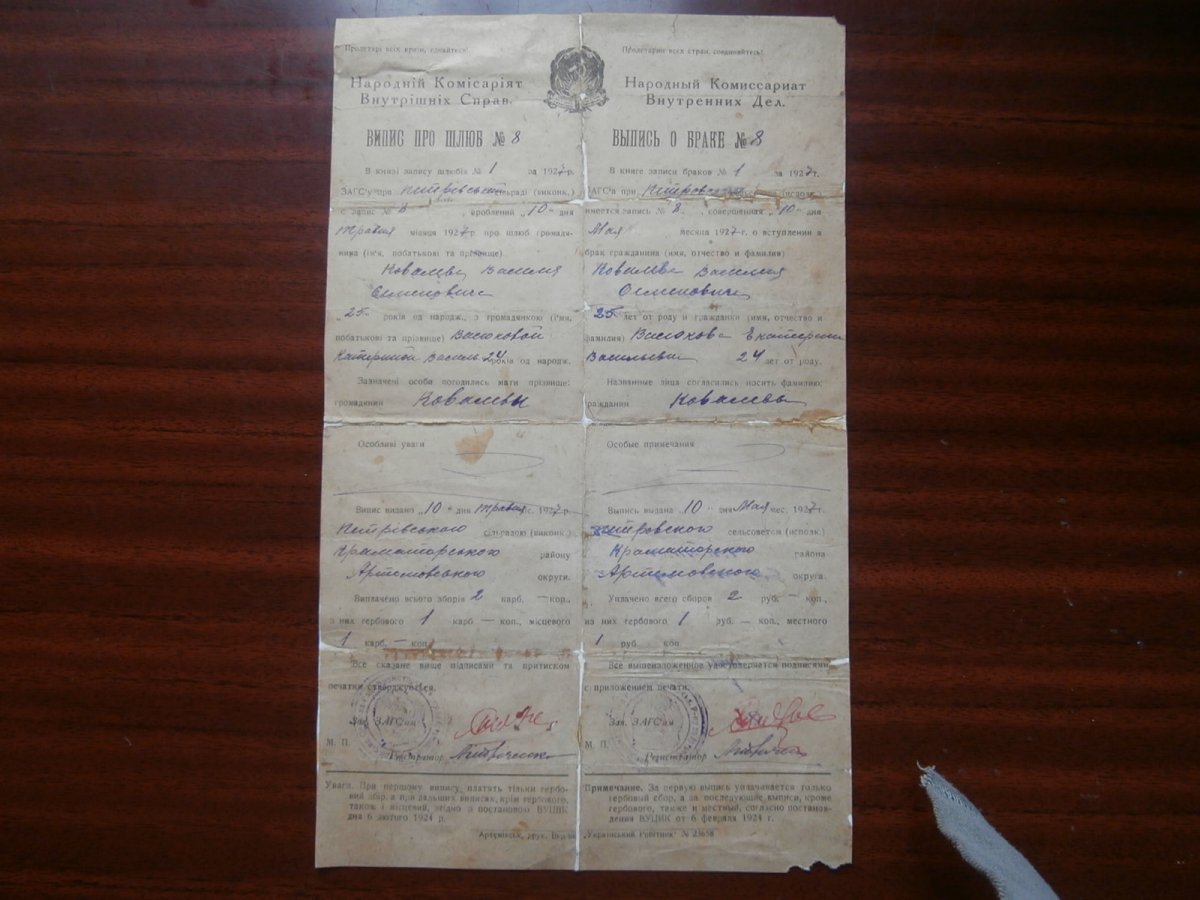 Пролетарі всіх країн, єднайтеся!
Народній Комісаріят
Внутрішніх Справ.
ВИПИС ПРО ШЛЮБ № 8
В книзі запису шлюбів № 1 за 1927 р.
ЗАГС'у при Петрівській сільраді (виконк.)
є запис № 8, зроблений „10" дня
травня місяця 1927 р. про шлюб громадя-
нина (ім'я, побатькові та прізвище)
Ковалева Василия
Семеновича
„25" років од народж., з громадянкою (ім'я,
побатькові та прізвище) Васюковой
Катериной Василь 24 років од народж.
Зазначені особи погодились мати прізвище:
громадянин Ковалевы
Особливі уваги
Випис видано „10" дня травня міс. 1927 р.
Петрівського сільрадою (виконк.)
Краматорського району
Артемовського округи.
Виплачено всього зборів 2 карб. — коп.,
з них гербового 1 карб — коп., місцевого
1 карб. — коп.
Все сказане вище підписами та притиском
печатки стверджується.
Зав. ЗАГС'ом
М. П.
Реєстратор
Увага. При першому випису платять тільки гербо-
вий збір, а при дальших виписах, крім гербового,
також і місцевий, згідно з постановою ВУЦИК
дня 6 лютого 1924 р.
Пролетарии всех стран, соединяйтесь!
Народный Комиссариат
Внутренних Дел.
ВЫПИСЬ О БРАКЕ № 8
В книге записи браков № 1 за 1927 г.
ЗАГС'а при Петровском (исполк.)
имеется запись № 8, совершенная „10" дня
Мая месяца 1927 г. о вступлении в
брак гражданина (имя, отчество и фамилия)
Ковалева Василия
Семеновича
25 лет от роду и гражданки (имя, отчество и
фамилия) Васюкова Екатерина
Васильевна 24 лет от роду.
Названные лица согласились носить фамилию:
гражданин Ковалевы
Особые примечания
Выпись выдана „10" дня Мая мес. 1927 г.
Петровского сельсоветом (исполк)
Краматорского района
Артемовского округа.
Уплачено всего сборов 2 руб. — коп.,
из них гербового 1 руб. — коп., местного
1 руб. коп.
Все вышеизложенное удостоверяется подписями
с приложением печати.
Зав. ЗАГС'ом
М. П.
Регистратор
Примечание. За первую выпись уплачивается только
гербовый сбор, а за последующие выписи, кроме
гербового, также и местный, согласно постанов-
ления ВУЦИК от 6 февраля 1924 г.
Артемівськ, друк. Вид-ва „Український Робітник" № 23658